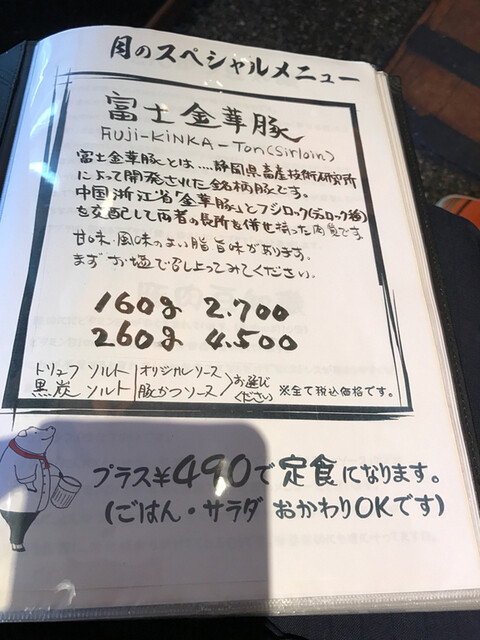 月のスペシャルメニュー
富士金華豚
FUJI-KINKA-Ton(Sirloin)
富士金華豚とは....静岡県畜産技術研究所
によって開発された銘柄豚です。
中国浙江省「金華豚」とフジロック(デュロック種)
を交配して両者の長所を併せ揃った肉質です
甘味・風味のよい脂旨味があります。
まずお塩で召し上ってみてください。
160g 2.700
260g 4.500
トリュフ ソルト オリジナルソース
黒炭 ソルト 豚かつソース
お選び
ください ※全て税込価格です。
プラス¥490で定食になります。
(ごはん・サラダ おかわりOKです)